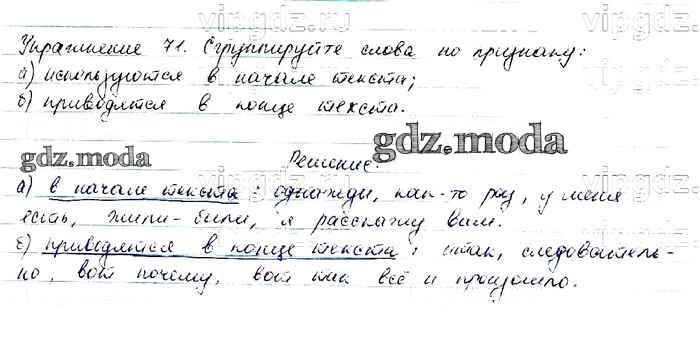 vipgdz.ru
vipgdz.ru
Упражнение 71. Сгруппируйте слова по признаку:
а) используются в начале текста;
б) приводятся в конце текста.
gdz.moda
gdz.moda
Решение.
а) в начале текста: однажды, как-то раз, у меня
есть, жили-были, я расскажу вам.
б) приводятся в конце текста: итак, следователь-
но, вот почему, вот так всё и произошло.